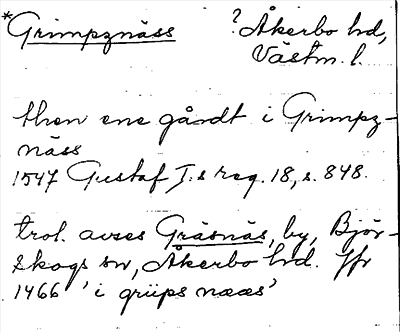 *Grimpznäss ? Åkerbo hd,
Västm. l.
then ene gårdt i Grimpz-
näss
1547 Gustaf I:s reg. 18, s. 848.
trol. avses Gräsnäs, by, Björ-
skogs sn, Åkerbo hd. Jfr
1466 'i grüps næøs'